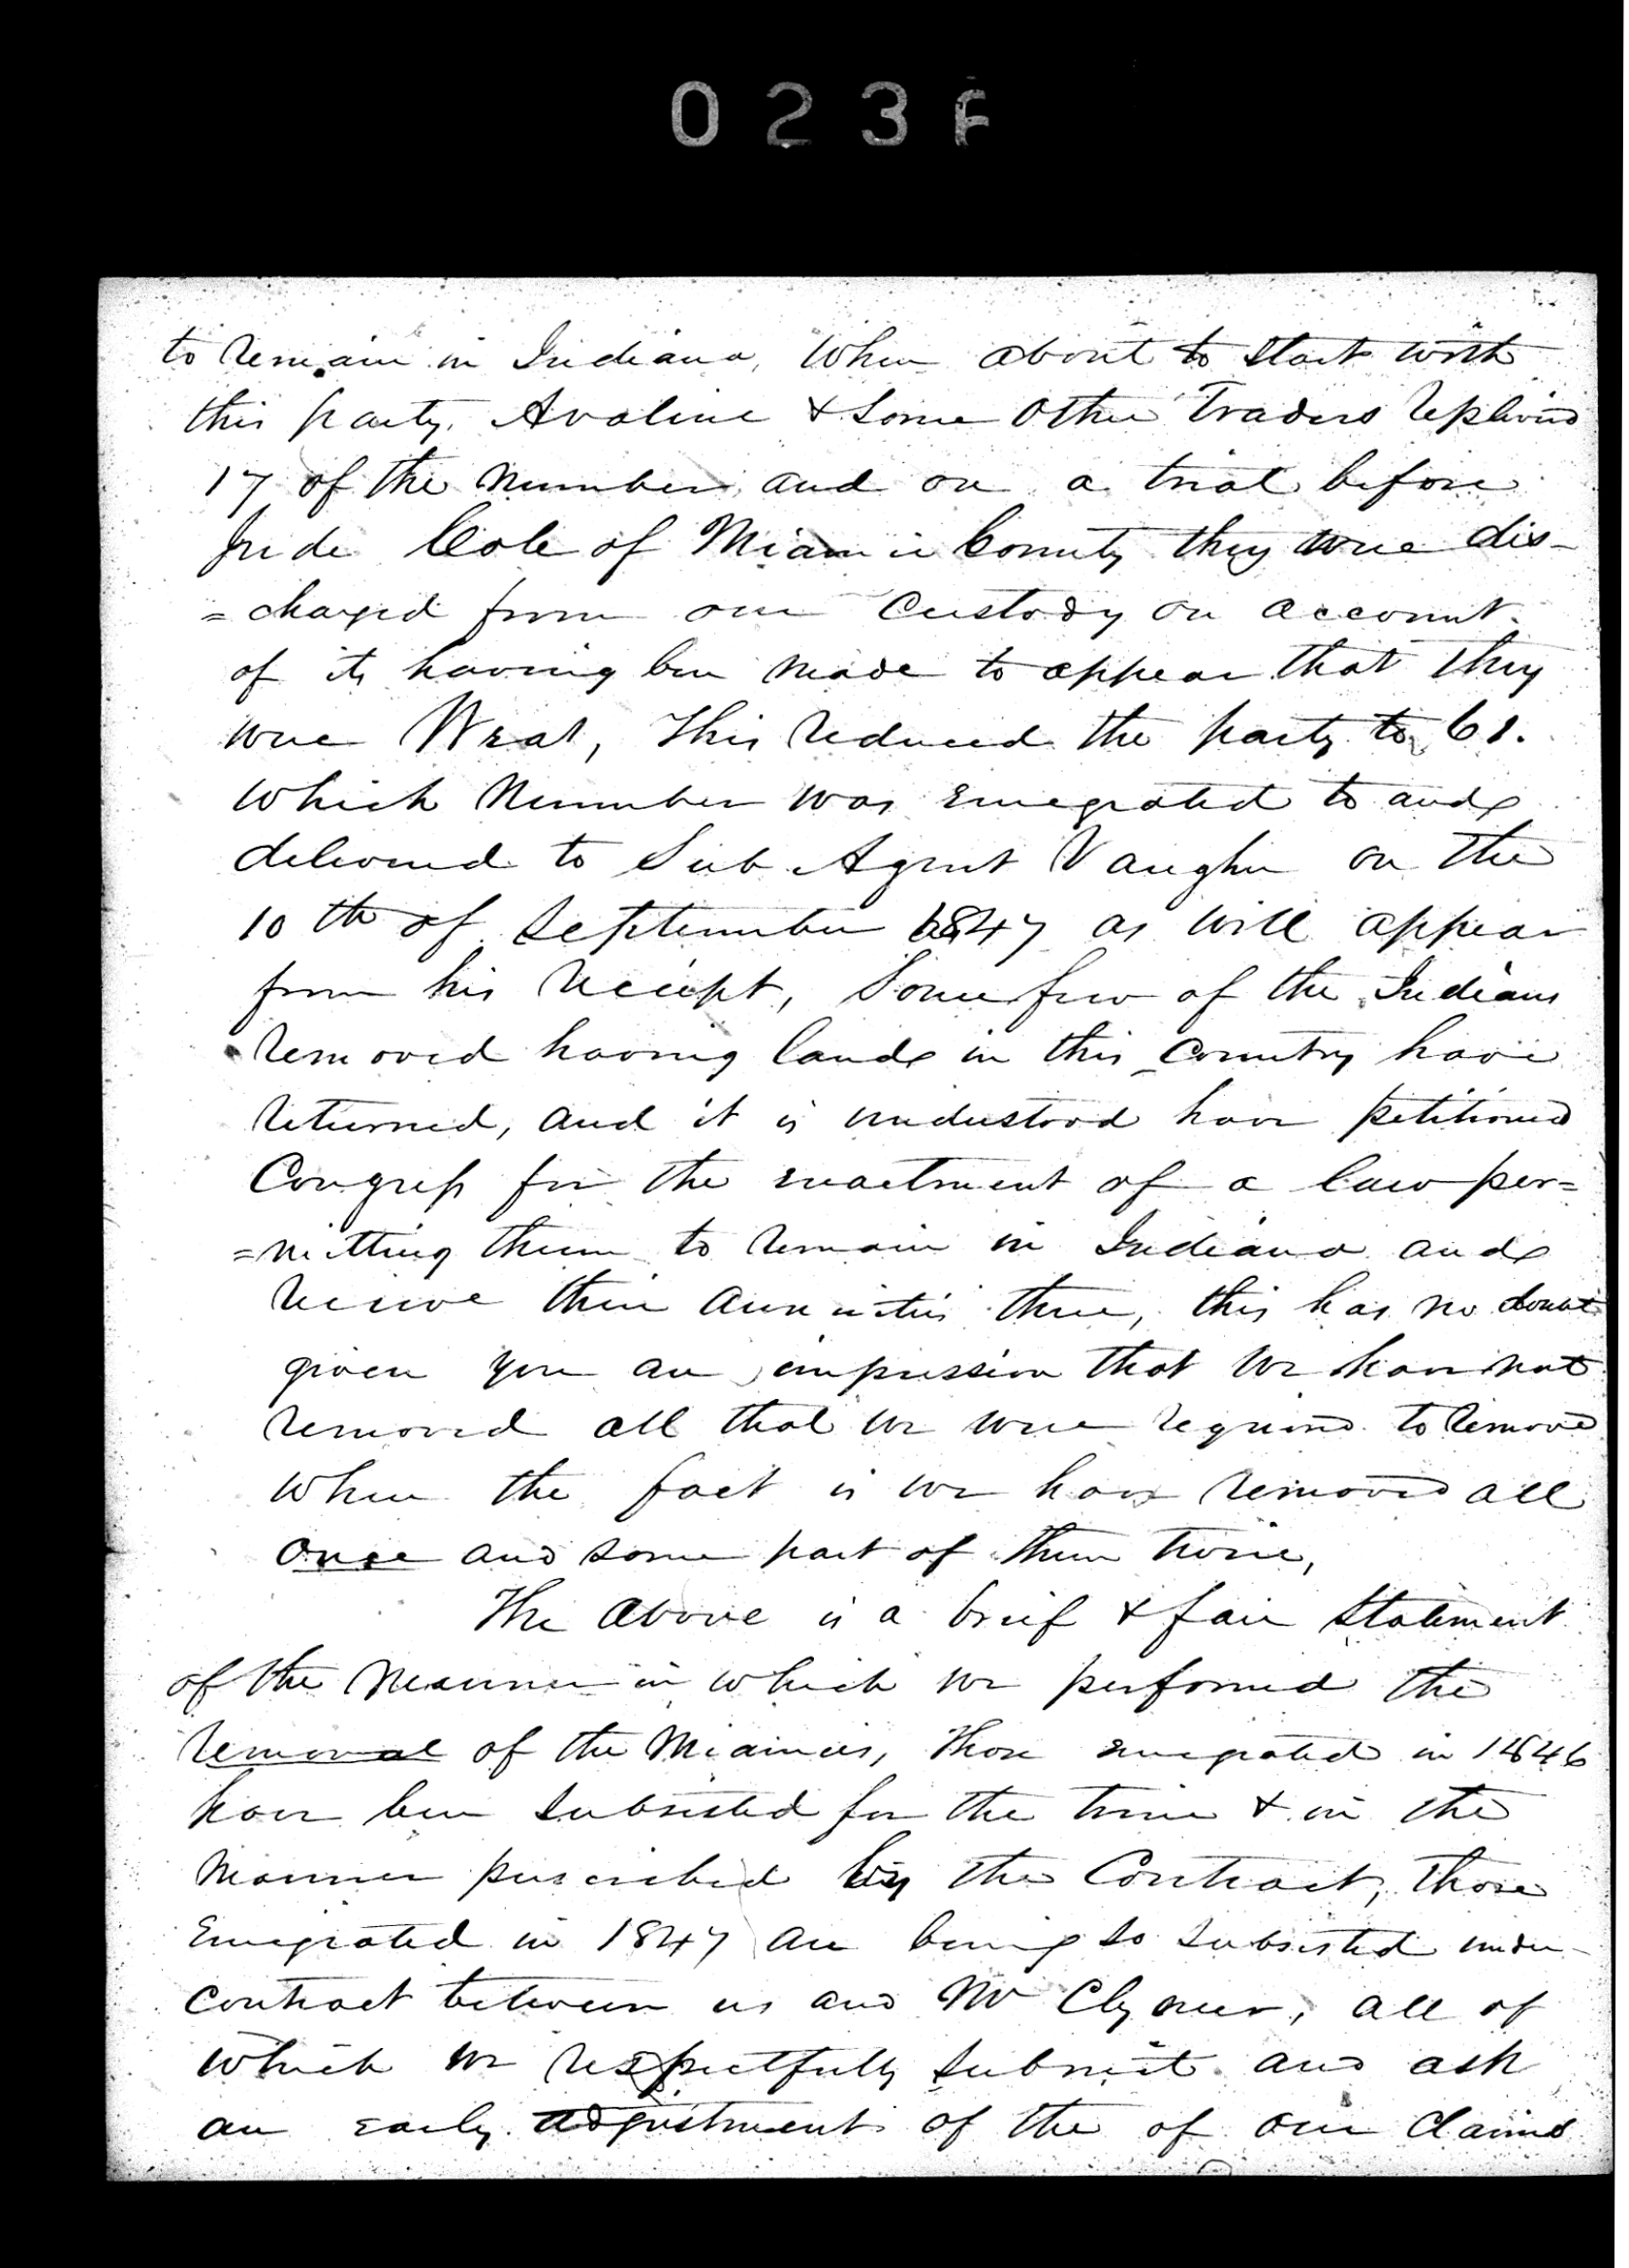 023
to remain in Indiana, When about to start with
this party. Avaline & some other Traders replevied
17 of the number, and on a trial before
Jude Cole of Miami County they were dis-
=charged from our Custody on account
of its having been made to appear that they
were Weas, This reduced the party to 61.
which number was emegrated to and
delivered to Sub Agent Vaughn on the
10th of September 1847 as will appear
from his reciept, Some few of the Indians
removed having lands in this Country have
returned, and it is understood have petitioned
Congress for the enactment of a law per=
=mitting them to remain in Indiana and
recieve their annuities there, this has no doubt
given you an impression that we have not
removed all that we were required to remove
when the fact is we have removed all
once and some part of them twice,
The above is a brief & fair statement
of the manner in which we performed the
removal of the Miamies, Those emegrated in 1846
have been subsisted for the time & in the
manner prescribed by the Contract, those
Emegrated in 1847 are being so subsisted under
contract between us and Mr Clymer, all of
which we respectfully submit and ask
an early adjustment of the of our Claims